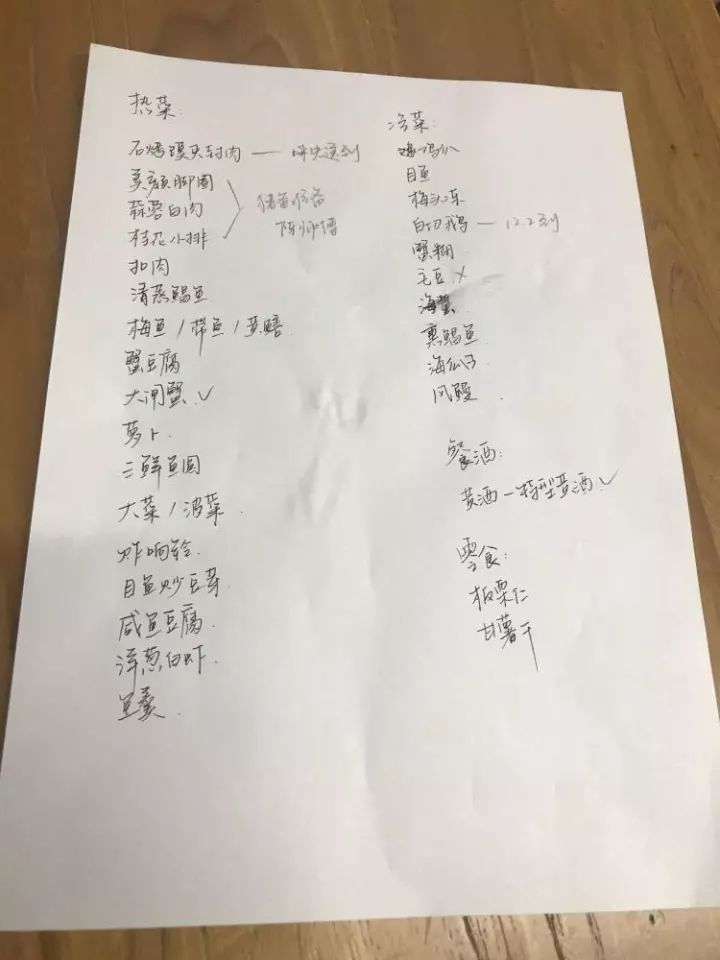 热菜:
石烤馒头封肉 —
美颜脚圈
蒜蓉白肉
陈师傅
桂花小排
扣肉
清蒸鲳鱼
梅鱼/带鱼/黄鳝
蟹豆腐
大闸蟹 ✓
萝卜
三鲜鱼圆
大菜/菠菜
炸响铃
目鱼炒豆芽
咸鱼豆腐
洋葱白虾
鱼羹
冷菜:
目鱼
梅头冻
白切鹅 — 12.2到
蟹糊
毛豆 ×
海蜇
熏鲳鱼
海瓜子
风鳗
餐酒:
黄酒 — 特型黄酒 ✓
零食:
板栗仁
甘薯干